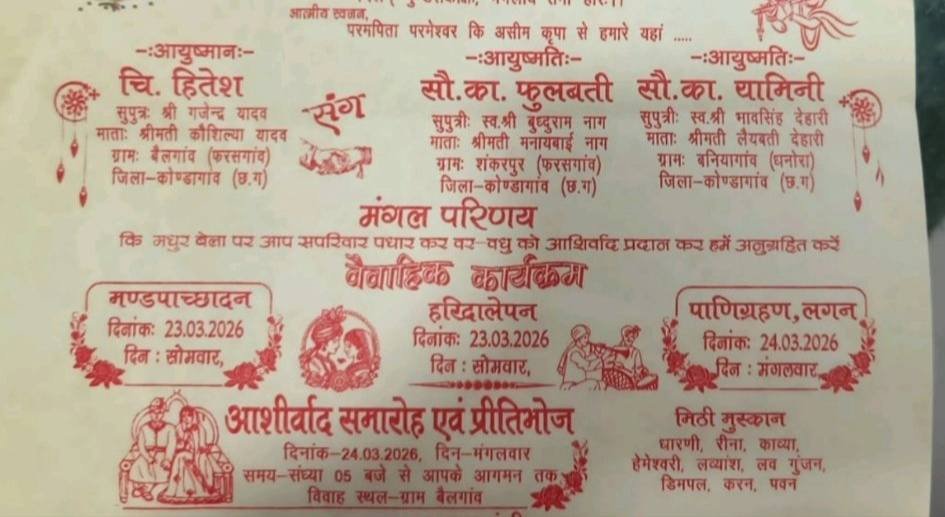 आत्मीय स्वजन,
परमपिता परमेश्वर कि असीम कृपा से हमारे यहां .....
-ःआयुष्मानः-
चि. हितेश
सुपुत्रः श्री गजेन्द्र यादव
माताः श्रीमती कौशिल्या यादव
ग्रामः बैलगांव (फरसगांव)
जिला-कोण्डागांव (छ.ग)
संग
-ःआयुष्मतिः-
सौ.का. फुलबती
सुपुत्रीः स्व.श्री बुध्दुराम नाग
माताः श्रीमती मनायबाई नाग
ग्रामः शंकरपुर (फरसगांव)
जिला-कोण्डागांव (छ.ग)
-ःआयुष्मतिः-
सौ.का. यामिनी
सुपुत्रीः स्व.श्री भावसिंह देहारी
माताः श्रीमती लैयबती देहारी
ग्रामः बनियागांव (धनोरा)
जिला-कोण्डागांव (छ.ग)
मंगल परिणय
कि मधुर बेला पर आप सपरिवार पधार कर वर-वधु को आशिर्वाद प्रदान कर हमें अनुग्रहित करें
वैवाहिक कार्यक्रम
मण्डपाच्छादन
दिनांकः 23.03.2026
दिन : सोमवार,
हरिद्रालेपन
दिनांकः 23.03.2026
दिन : सोमवार,
पाणिग्रहण, लगन
दिनांकः 24.03.2026
दिन : मंगलवार,
आशीर्वाद समारोह एवं प्रीतिभोज
दिनांक-24.03.2026, दिन-मंगलवार
समय-संध्या 05 बजे से आपके आगमन तक
विवाह स्थल-ग्राम बैलगांव
मिठी मुस्कान
धारणी, रीना, काव्या,
हेमेश्वरी, लव्यांश, लव गुंजन,
डिम्पल, करन, पवन